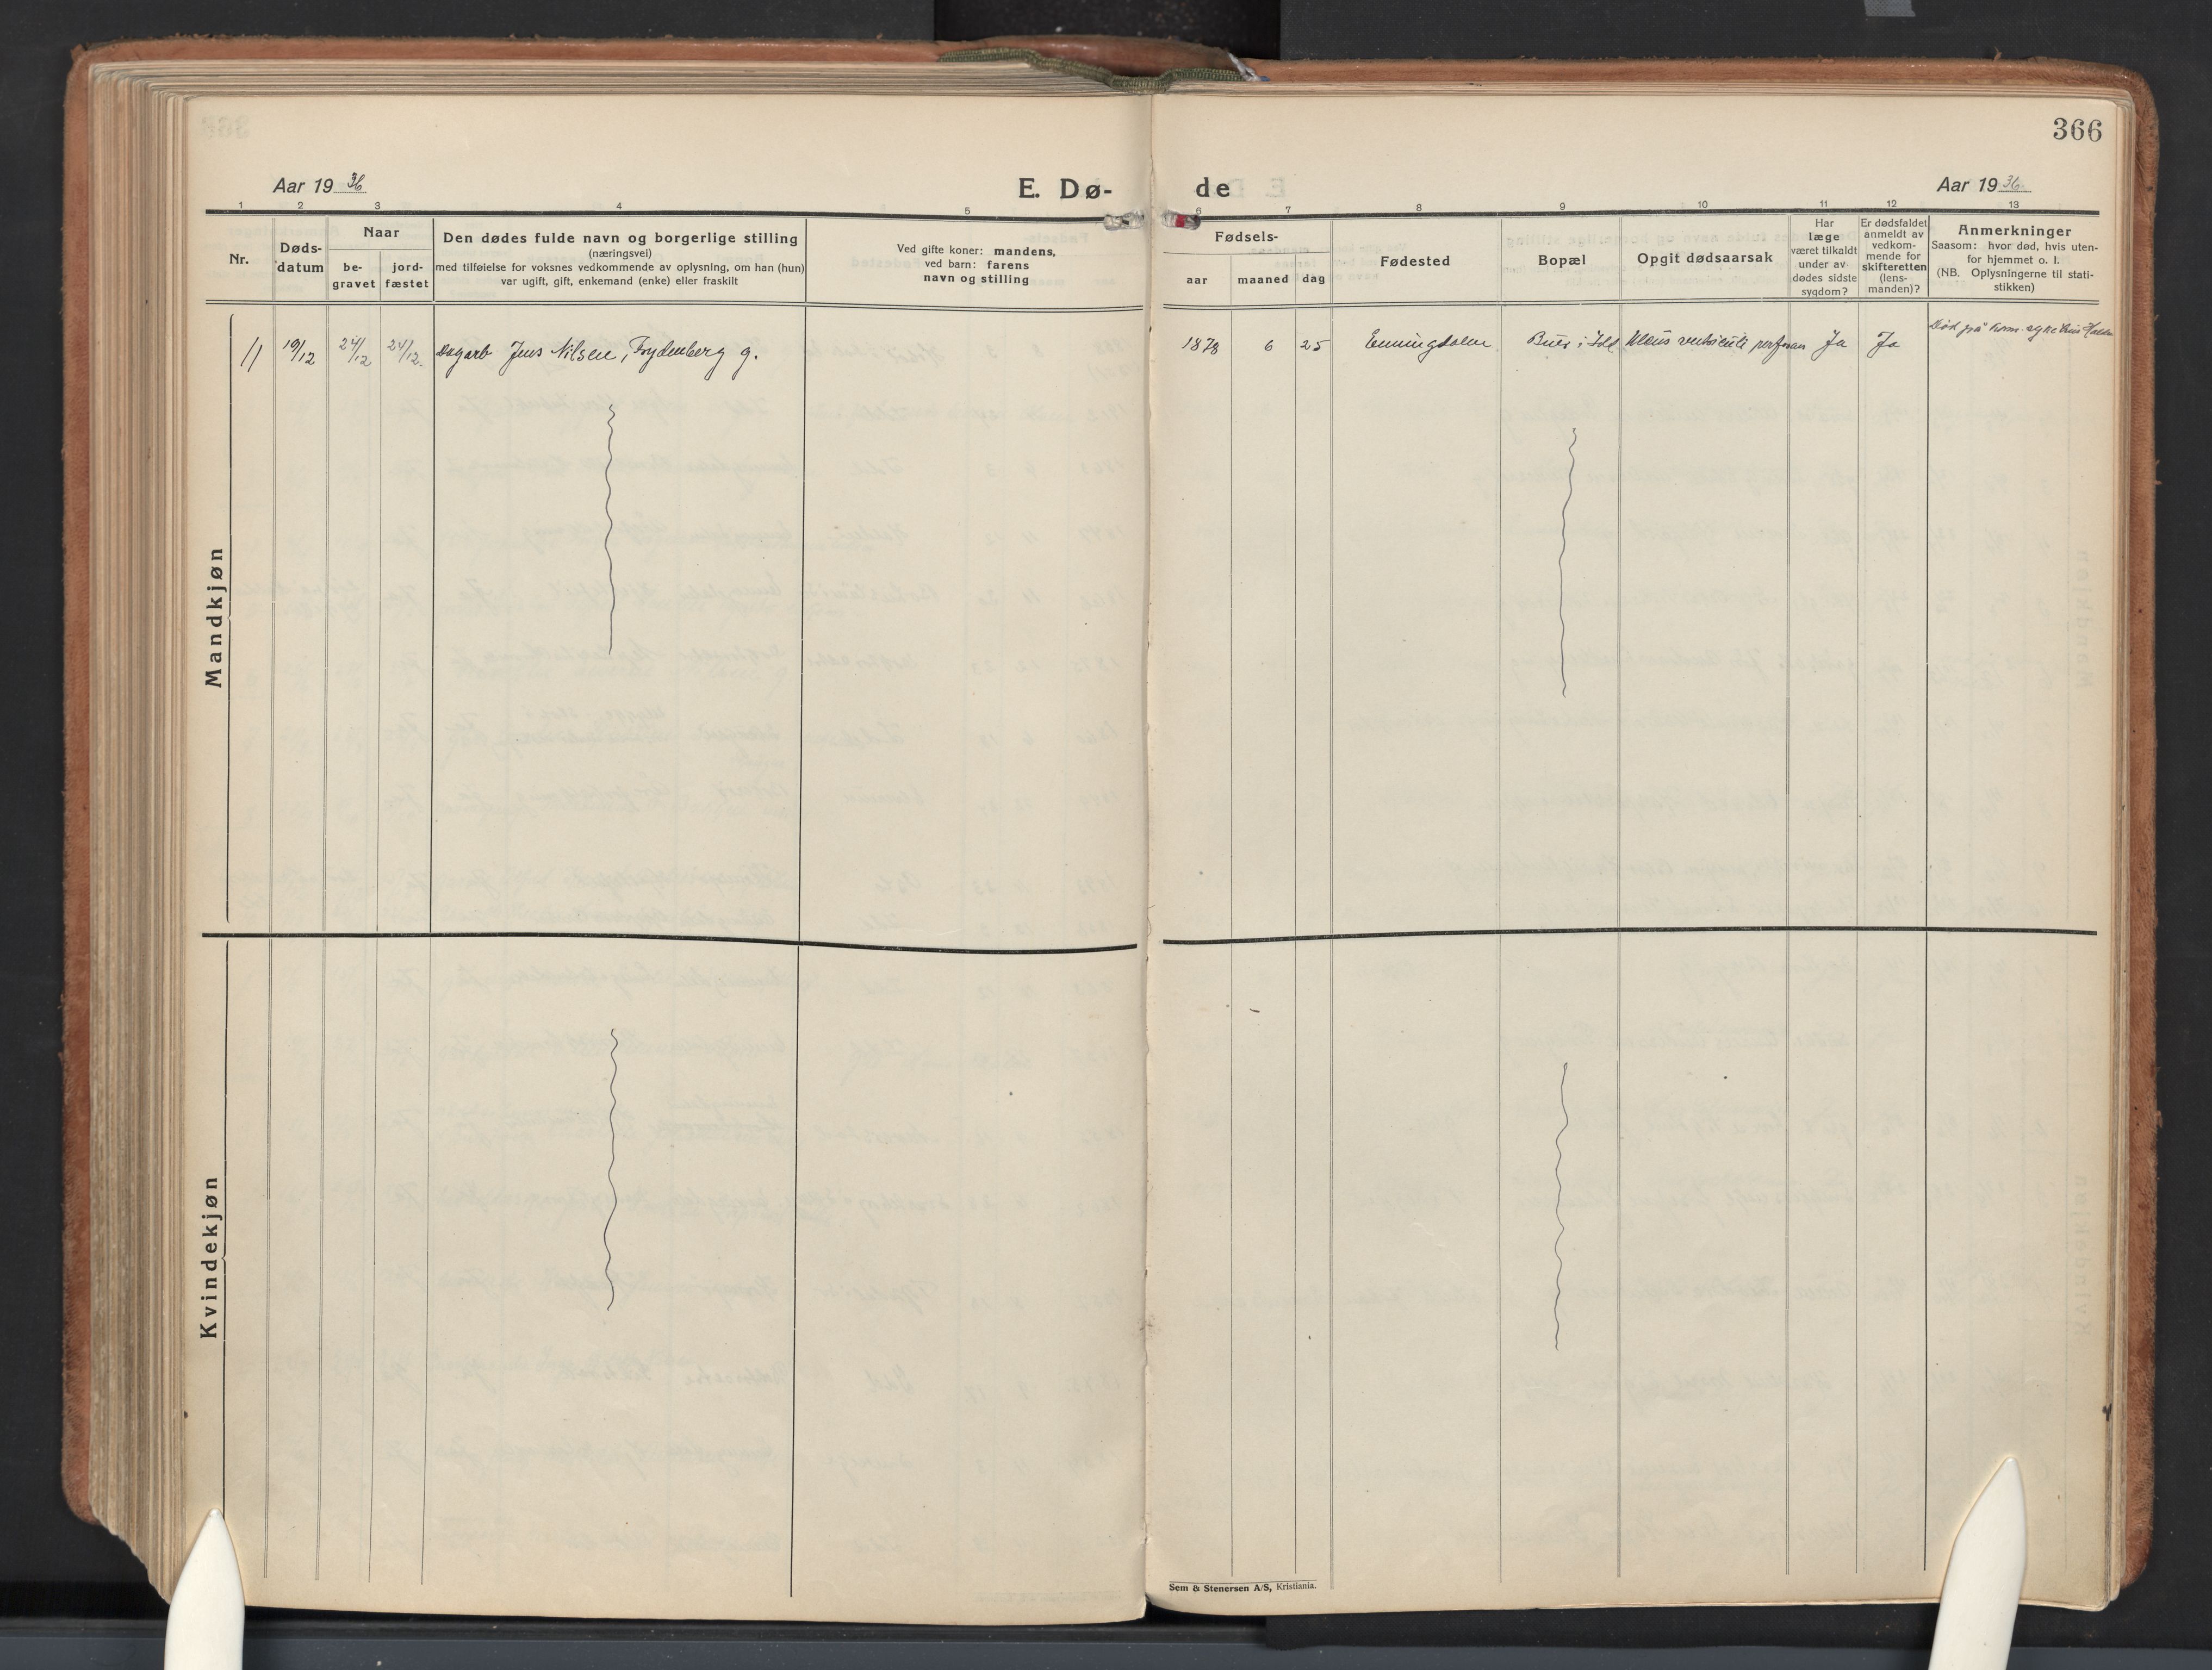 366
Aar 19 36
E. Dø-
de
Aar 19 36
1 2 3 4 5 6 7 8 9 10 11 12 13
Nr.
Døds-
datum
Naar
be-
gravet
jord-
fæstet
Den dødes fulde navn og borgerlige stilling
(næringsvei)
med tilføielse for voksnes vedkommende av oplysning, om han (hun)
var ugift, gift, enkemand (enke) eller fraskilt
Ved gifte koner: mandens,
ved barn: farens
navn og stilling
Fødsels-
aar
maaned
dag
Fødested
Bopæl
Opgit dødsaarsak
Har
læge
været tilkaldt
under av-
dødes sidste
sygdom?
Er dødsfaldet
anmeldt av
vedkom-
mende for
skifteretten
(lens-
manden)?
Anmerkninger
Saasom: hvor død, hvis uten-
for hjemmet o. l.
(NB. Oplysningerne til stati-
stikken)
11 19/12 24/12 24/12. Dagarb Jens Nilsen, Frydenberg g. 1878 6 25 Enningdalen Buer i Idd Ulcus ventriculi perforans Ja Ja Død på kom. sykehus Halden
Mandkjøn
Kvindekjøn
Sem & Stenersen A/S, Kristiania.